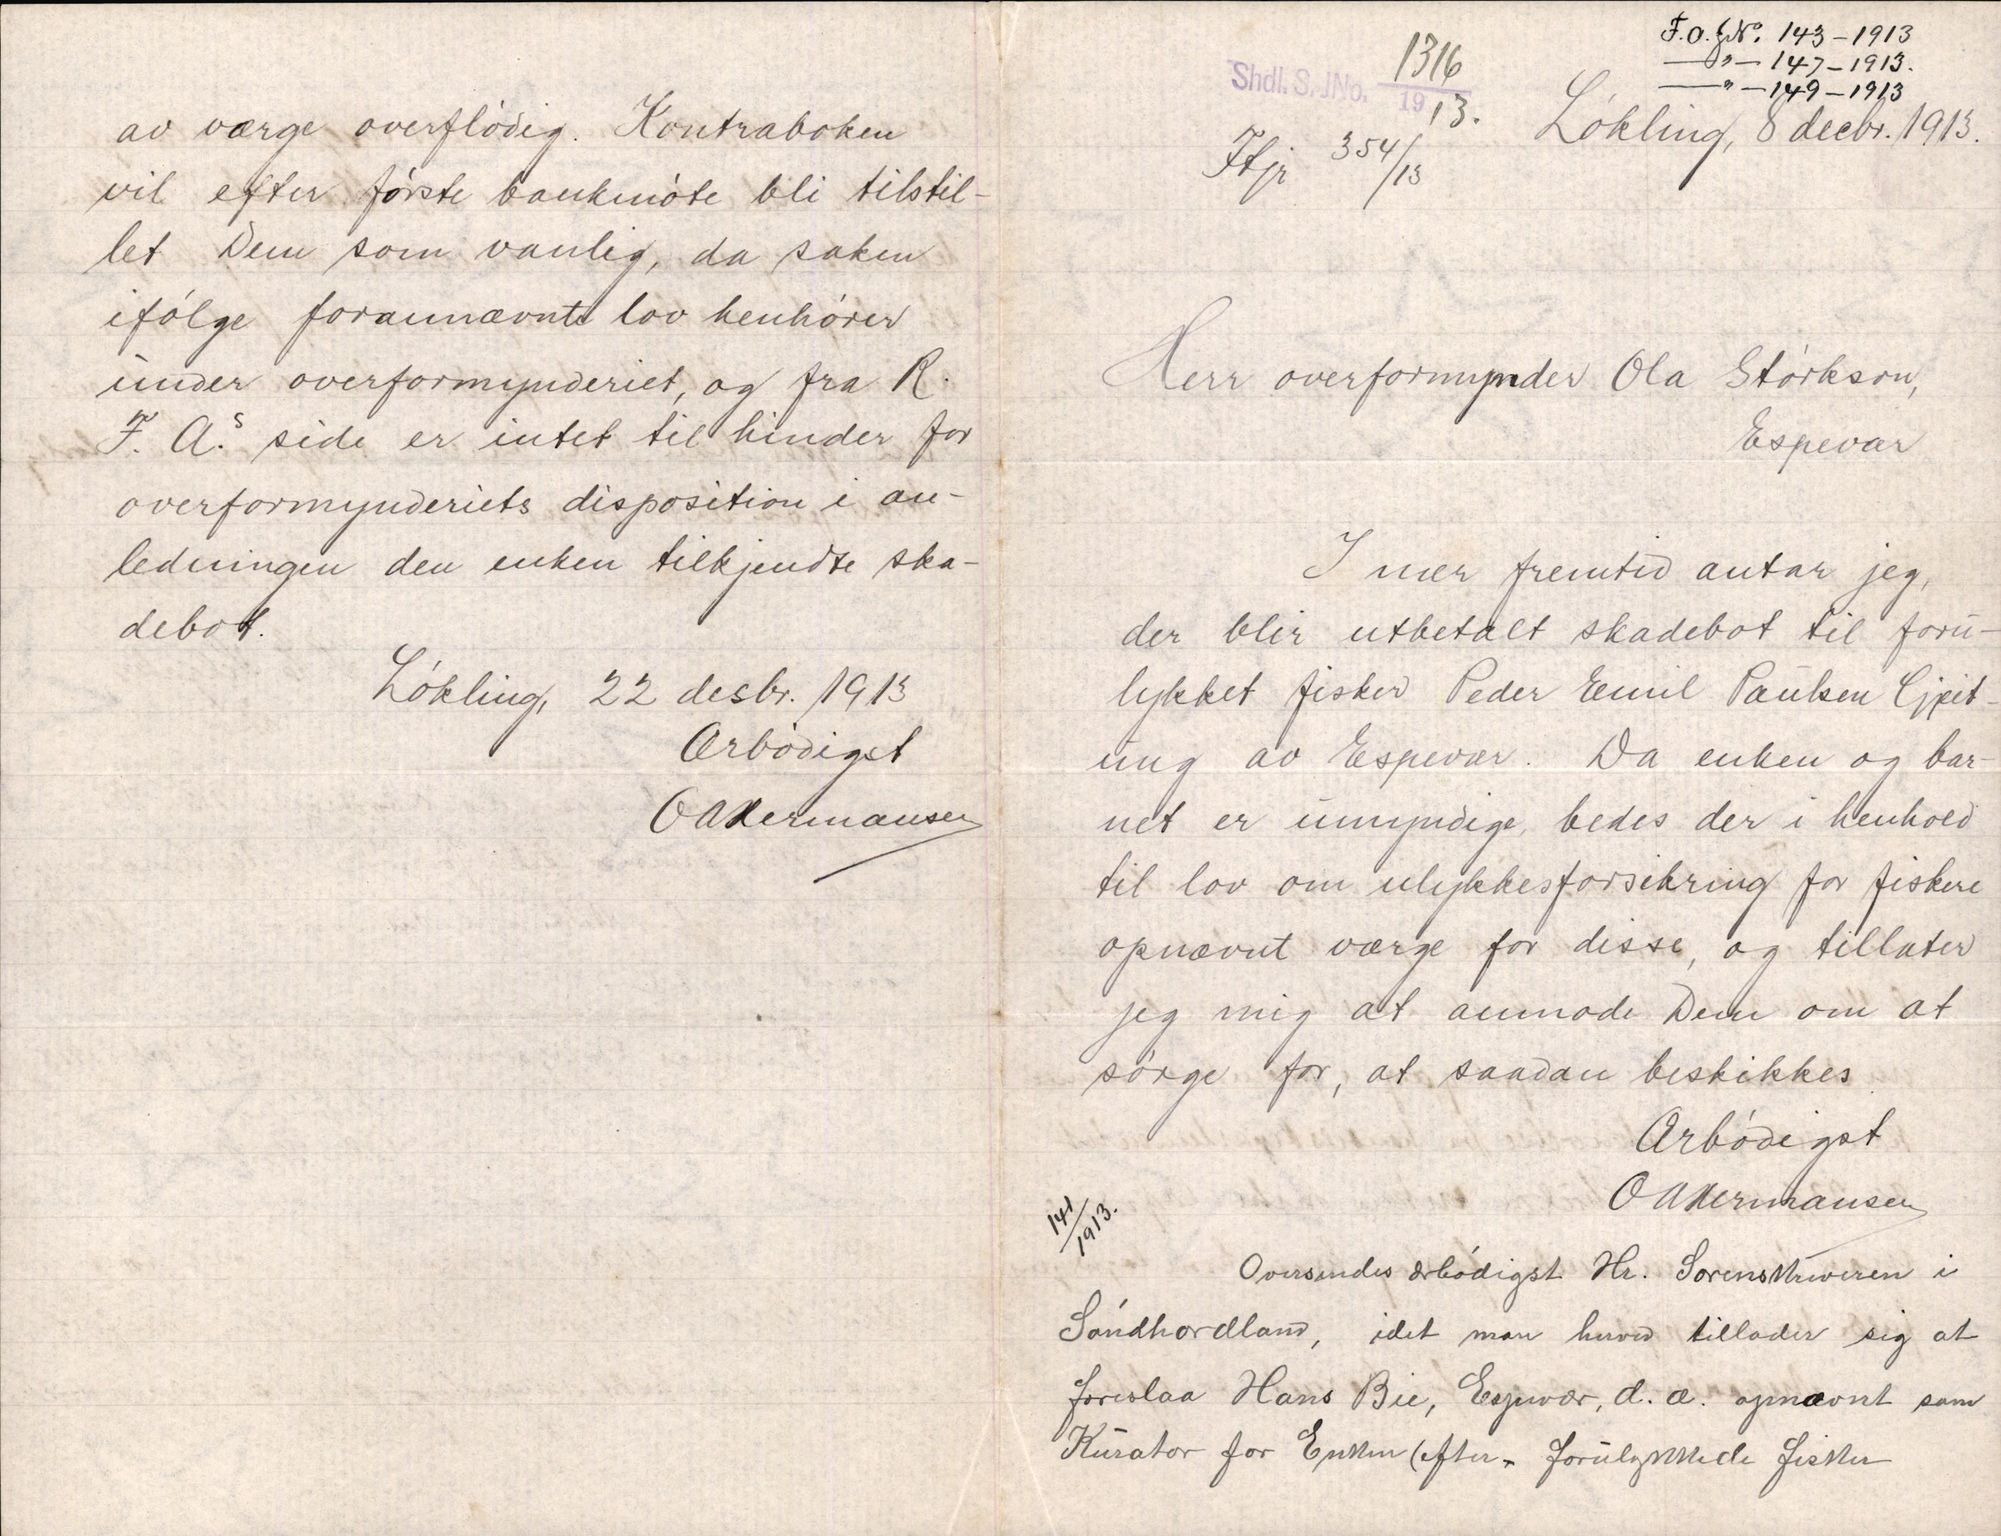 av værge overflødig. Kontraboken
vil efter første bankmøte bli tilstil-
let Dem som vanlig, da saken
ifølge forannævnte lov henhører
under overformynderiet, og fra R.
F. A.s side er intet til hinder for
overformynderiets disposition i an-
ledningen den enken tilkjendte ska-
debot.
Løkling, 22 desbr. 1913
Ærbødigst
O A Hermansen
F.O.J No. 143-1913
—"— 147-1913.
—"— 149-1913
Shdl. S. JNo. 1316
1913.
Løkling, 8 decbr. 1913.
Ftjr 354/13
Herr overformynder Ola Størkson,
Espevær
I nær fremtid antar jeg,
der blir utbetalt skadebot til foru-
lykket fisker Peder Emil Paulsen Gjeit-
ung av Espevær. Da enken og bar-
net er umyndige, bedes der i henhold
til lov om ulykkesforsikring for fiskere
opnævnt værge for disse, og tillater
jeg mig at anmode Dem om at
sørge for, at saadan beskikkes.
Ærbødigst
O A Hermansen
141/1913.
Oversendes ærbødigst Hr. Sorenskriveren i
Søndhordland, idet man herved tillader sig at
foreslaa Hans Bie, Espevær, d. æ. opnævnt som
Kurator for Enken (efter forulykkede fisker